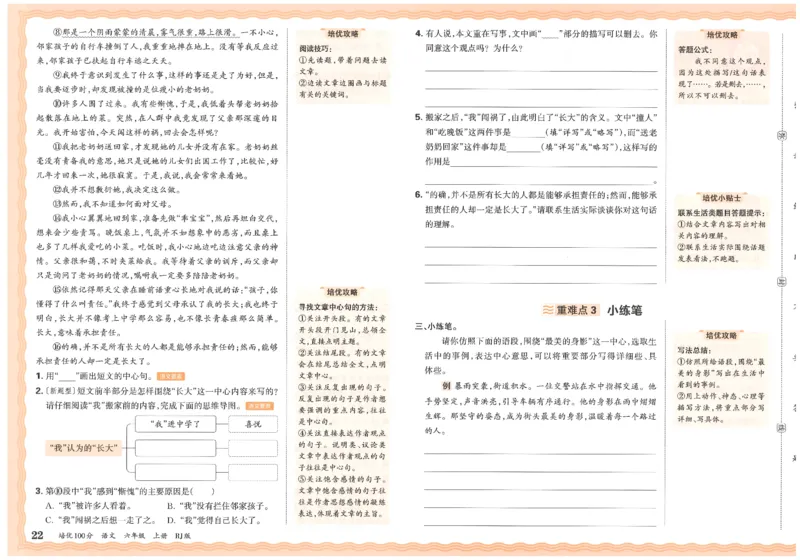 ⑧那是一个阴雨蒙蒙的清晨,雾气很重,路上很滑。一不小心,
邻家孩子的自行车撞倒了人,我重重地摔在地上。没有等我反应过
来,邻家孩子已扶起自行车不远之夭夭。
⑨我终于意识到发生了什么事,这样的事还是走了为好,但是,
当我要迈步时,却发现被撞的是位瘦小的老奶奶。
⑩许多人围了过来。我有些惭愧,于是,我低着头帮老奶奶拾
起散落在地上的菜。突然,在人群中我竟发现了父亲那深邃的目
光。我开始害怕,今天闯这样的祸,回去会怎样呢?
⑪我把老奶奶送回家,才发现她的儿女并没有在家。老奶奶丝
毫没有责备我的意思,她只是说她的儿女们出国工作了,比较忙,好
几年才回来一次,她很寂寞。于是,我说,我会常常来看她。
⑫我并不想敷衍她,我决定这么做。
⑬然而,我不知道如何面对父母。
⑭我小心翼翼地回到家,准备先做“乖宝宝”,然后再坦白交代,
想来会少些责骂。晚饭桌上,气氛并不如想象中的恶劣,而且桌上
也多了几样我爱吃的小菜。吃饭时,我小心地边吃边注意父母的神
情。父亲很和蔼,不时夹菜给我。我等待着父亲的训斥,而父亲却
只是询问了老奶奶的情况,嘱咐我一定要多陪陪老奶奶。
⑮依然记得那天父亲在睡前语重心长地对我说的话:“孩子,你
懂得了什么叫责任。”我终于感觉到父母承认了我的长大;我也终于
明白,长大并不像考上中学那么容易,也不像长青春痘那么简单。
长大,意味着承担责任。
⑯的确,并不是所有长大的人都是能够承担责任的;然而,能够
承担责任的人却一定是长大了。
1. 用“____”画出短文的中心句。
2. [新题型] 短文前半部分是怎样围绕“长大”这一中心内容来写的?
请仔细阅读“我”搬家前的内容,完成下面的思维导图。
“我”进中学了
喜悦
“我”认为的“长大”
3. 第⑩段中“我”感到“惭愧”的主要原因是( )
A. “我”被许多人看着。 B. “我”没有拦住邻家孩子。
C. “我”闯祸之后想一走了之。 D. “我”觉得自己长大了。
22 培优100分 语文 六年级 上册 RJ版
培优攻略
阅读技巧:
①先读题,带着问题去读
文章。
②边读文章边圈画与标题
有关的关键词。
培优攻略
寻找文章中心句的方法:
①关注开头段。有的文章
开头段开门见山,总领全
文,直接点明主题。
②关注结尾段。有的文章
会在结尾总结全文,点明
文章中心。
③关注反复出现的句子。
反复出现的句子是作者想
要强调的重点内容,往往
是中心句。
④关注直接表达作者观点
的句子。说明类、议论类
文章中表达作者观点的句
子往往是中心句。
⑤关注饱含感情的句子。
文章中饱含感情的句子往
往是作者思想感情的凝练
表达,体现着文章的主旨。
4. 有人说,本文重在写事,文中画“____”部分的描写可以删去。你
同意这个观点吗?为什么?
5. 搬家之后,“我”闯祸了,由此明白了“长大”的含义。文中“撞人”
和“吃晚饭”这两件事是______(填“详写”或“略写”),而“送老
奶奶回家”这件事却是______(填“详写”或“略写”),这样写的
作用是
。
6. “的确,并不是所有长大的人都是能够承担责任的;然而,能够承
担责任的人却一定是长大了。”请联系生活实际谈谈你对这句话
的理解。
重难点3 小练笔
三、小练笔。
请你仿照下面的语段,围绕“最美的身影”这一中心,选取生
活中的事例,表达中心意思,可以将重要部分写得详细些、具
体些。
例 暴雨突袭,街道积水。一位交警站在水中指挥交通。他
手势坚定,声音洪亮,引导车辆有序通行。他的身影在雨中熠熠
生辉。那坚守的姿态,成为街头最美的身影,温暖着每一个路过
的人。
培优攻略
答题公式:
我不同意这个观点,
因为这处描写/这句话表
现了……。若是删去,……,
所以不可以删去。
培优小贴士
联系生活类题目答题提示:
①结合文章内容写出对相
关内容的理解。
②联系生活实际围绕话题
发表看法,不跑题。
培优攻略
写法总结:
①仿照所给语段,围绕“最
美的身影”写出在生活中
看到的事例。
②用上动作、神态、心理等
描写方法,将重点部分写
详细、写具体。